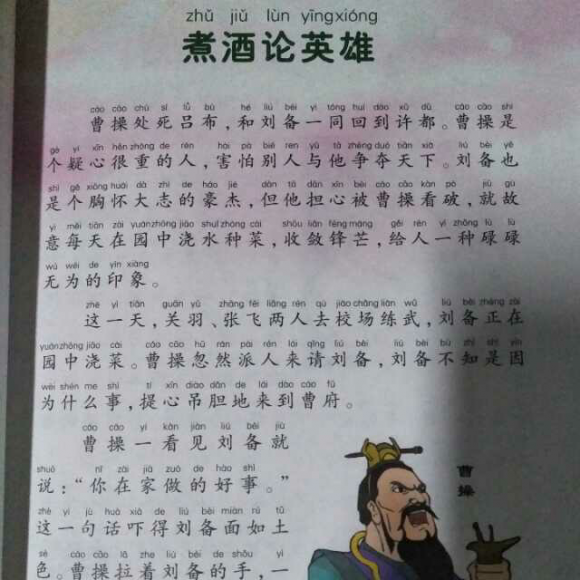 zhǔ jiǔ lùn yīngxióng
煮酒论英雄
cáo cāo chǔ sǐ lǚ bù hé liú bèi yì tóng huí dào xǔ dū cáo cāo shì
曹操处死吕布，和刘备一同回到许都。曹操是
gè yí xīn hěn zhòng de rén hài pà bié rén yǔ tā zhēng duó tiān xià liú bèi yě
个疑心很重的人，害怕别人与他争夺天下。刘备也
shì gè xiōng huái dà zhì de háo jié dàn tā dān xīn bèi cáo cāo kàn pò jiù gù
是个胸怀大志的豪杰，但他担心被曹操看破，就故
yì měi tiān zài yuánzhōng jiāo shuǐ zhòng cài shōu liǎn fēng máng gěi rén yì zhǒng lù lù
意每天在园中浇水种菜，收敛锋芒，给人一种碌碌
wú wéi de yìn xiàng
无为的印象。
zhè yì tiān guān yǔ zhāng fēi liǎng rén qù jiào chǎng liàn wǔ liú bèi zhèng zài
这一天，关羽、张飞两人去校场练武，刘备正在
yuánzhōng jiāo cài cáo cāo hū rán pài rén lái qǐng liú bèi liú bèi bù zhī shì yīn
园中浇菜。曹操忽然派人来请刘备，刘备不知是因
wèi shén me shì tí xīn diào dǎn de lái dào cáo fǔ
为什么事，提心吊胆地来到曹府。
cáo cāo yí kàn jiàn liú bèi jiù
曹操一看见刘备就
shuō nǐ zài jiā zuò de hǎo shì
说：“你在家做的好事。”
zhè yí jù huà xià de liú bèi miàn rú tǔ
这一句话吓得刘备面如土
sè cáo cāo lā zhe liú bèi de shǒu yí
色。曹操拉着刘备的手，一
曹操